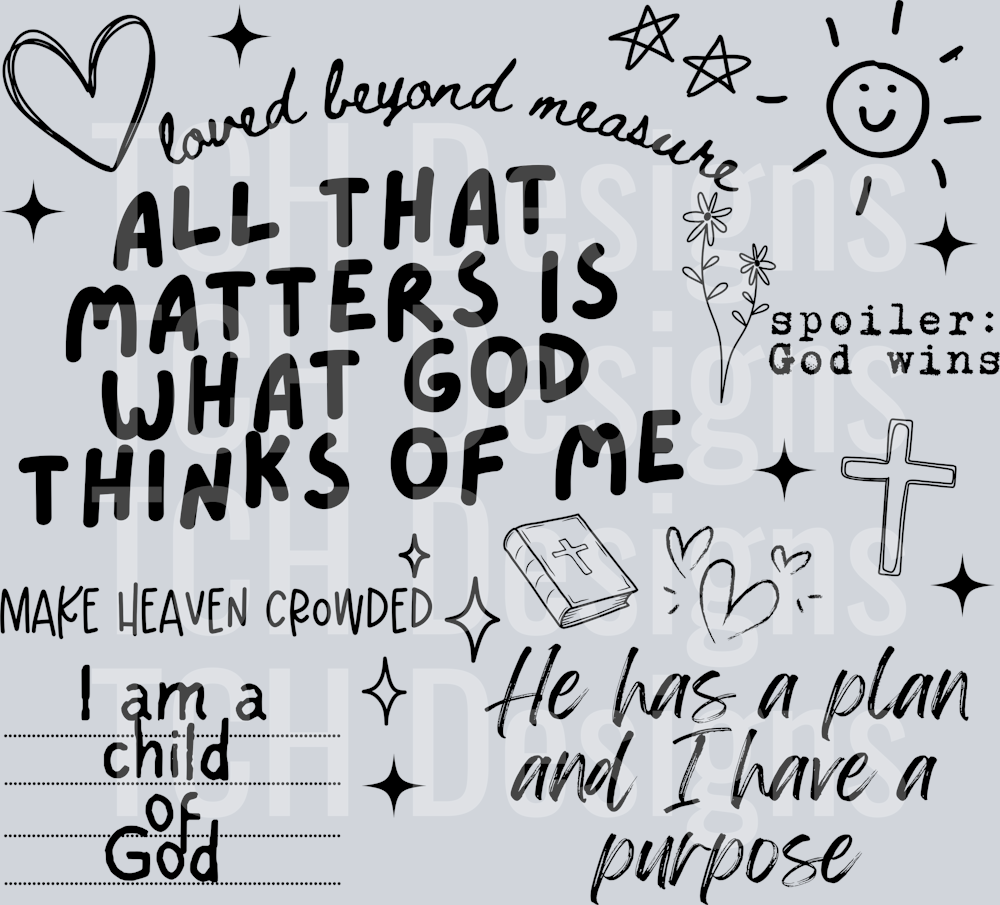 loved beyond measure
ALL THAT
MATTERS IS
WHAT GOD
THINKS OF ME
spoiler:
God wins
MAKE HEAVEN CROWDED
I am a
child
of
God
He has a plan
and I have a
purpose
TCH Designs
TCH Designs
TCH Designs
TCH Designs